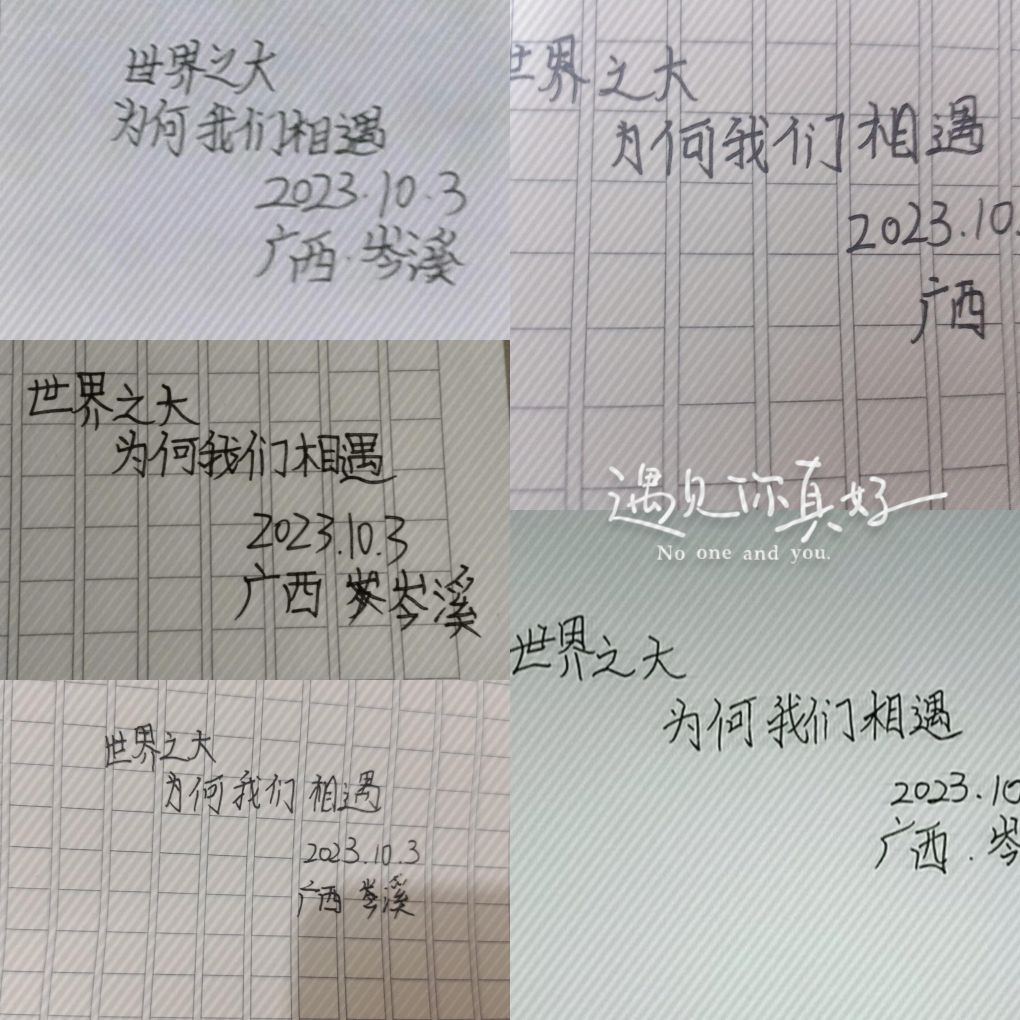 世界之大
为何我们相遇
2023.10.3
广西·岑溪
世界之大
为何我们相遇
2023.10.
广西
世界之大
为何我们相遇
2023.10.3
广西 岑溪
遇见你真好
No one and you.
世界之大
为何我们相遇
2023.10.3
广西 岑溪
世界之大
为何我们相遇
2023.10
广西.岑